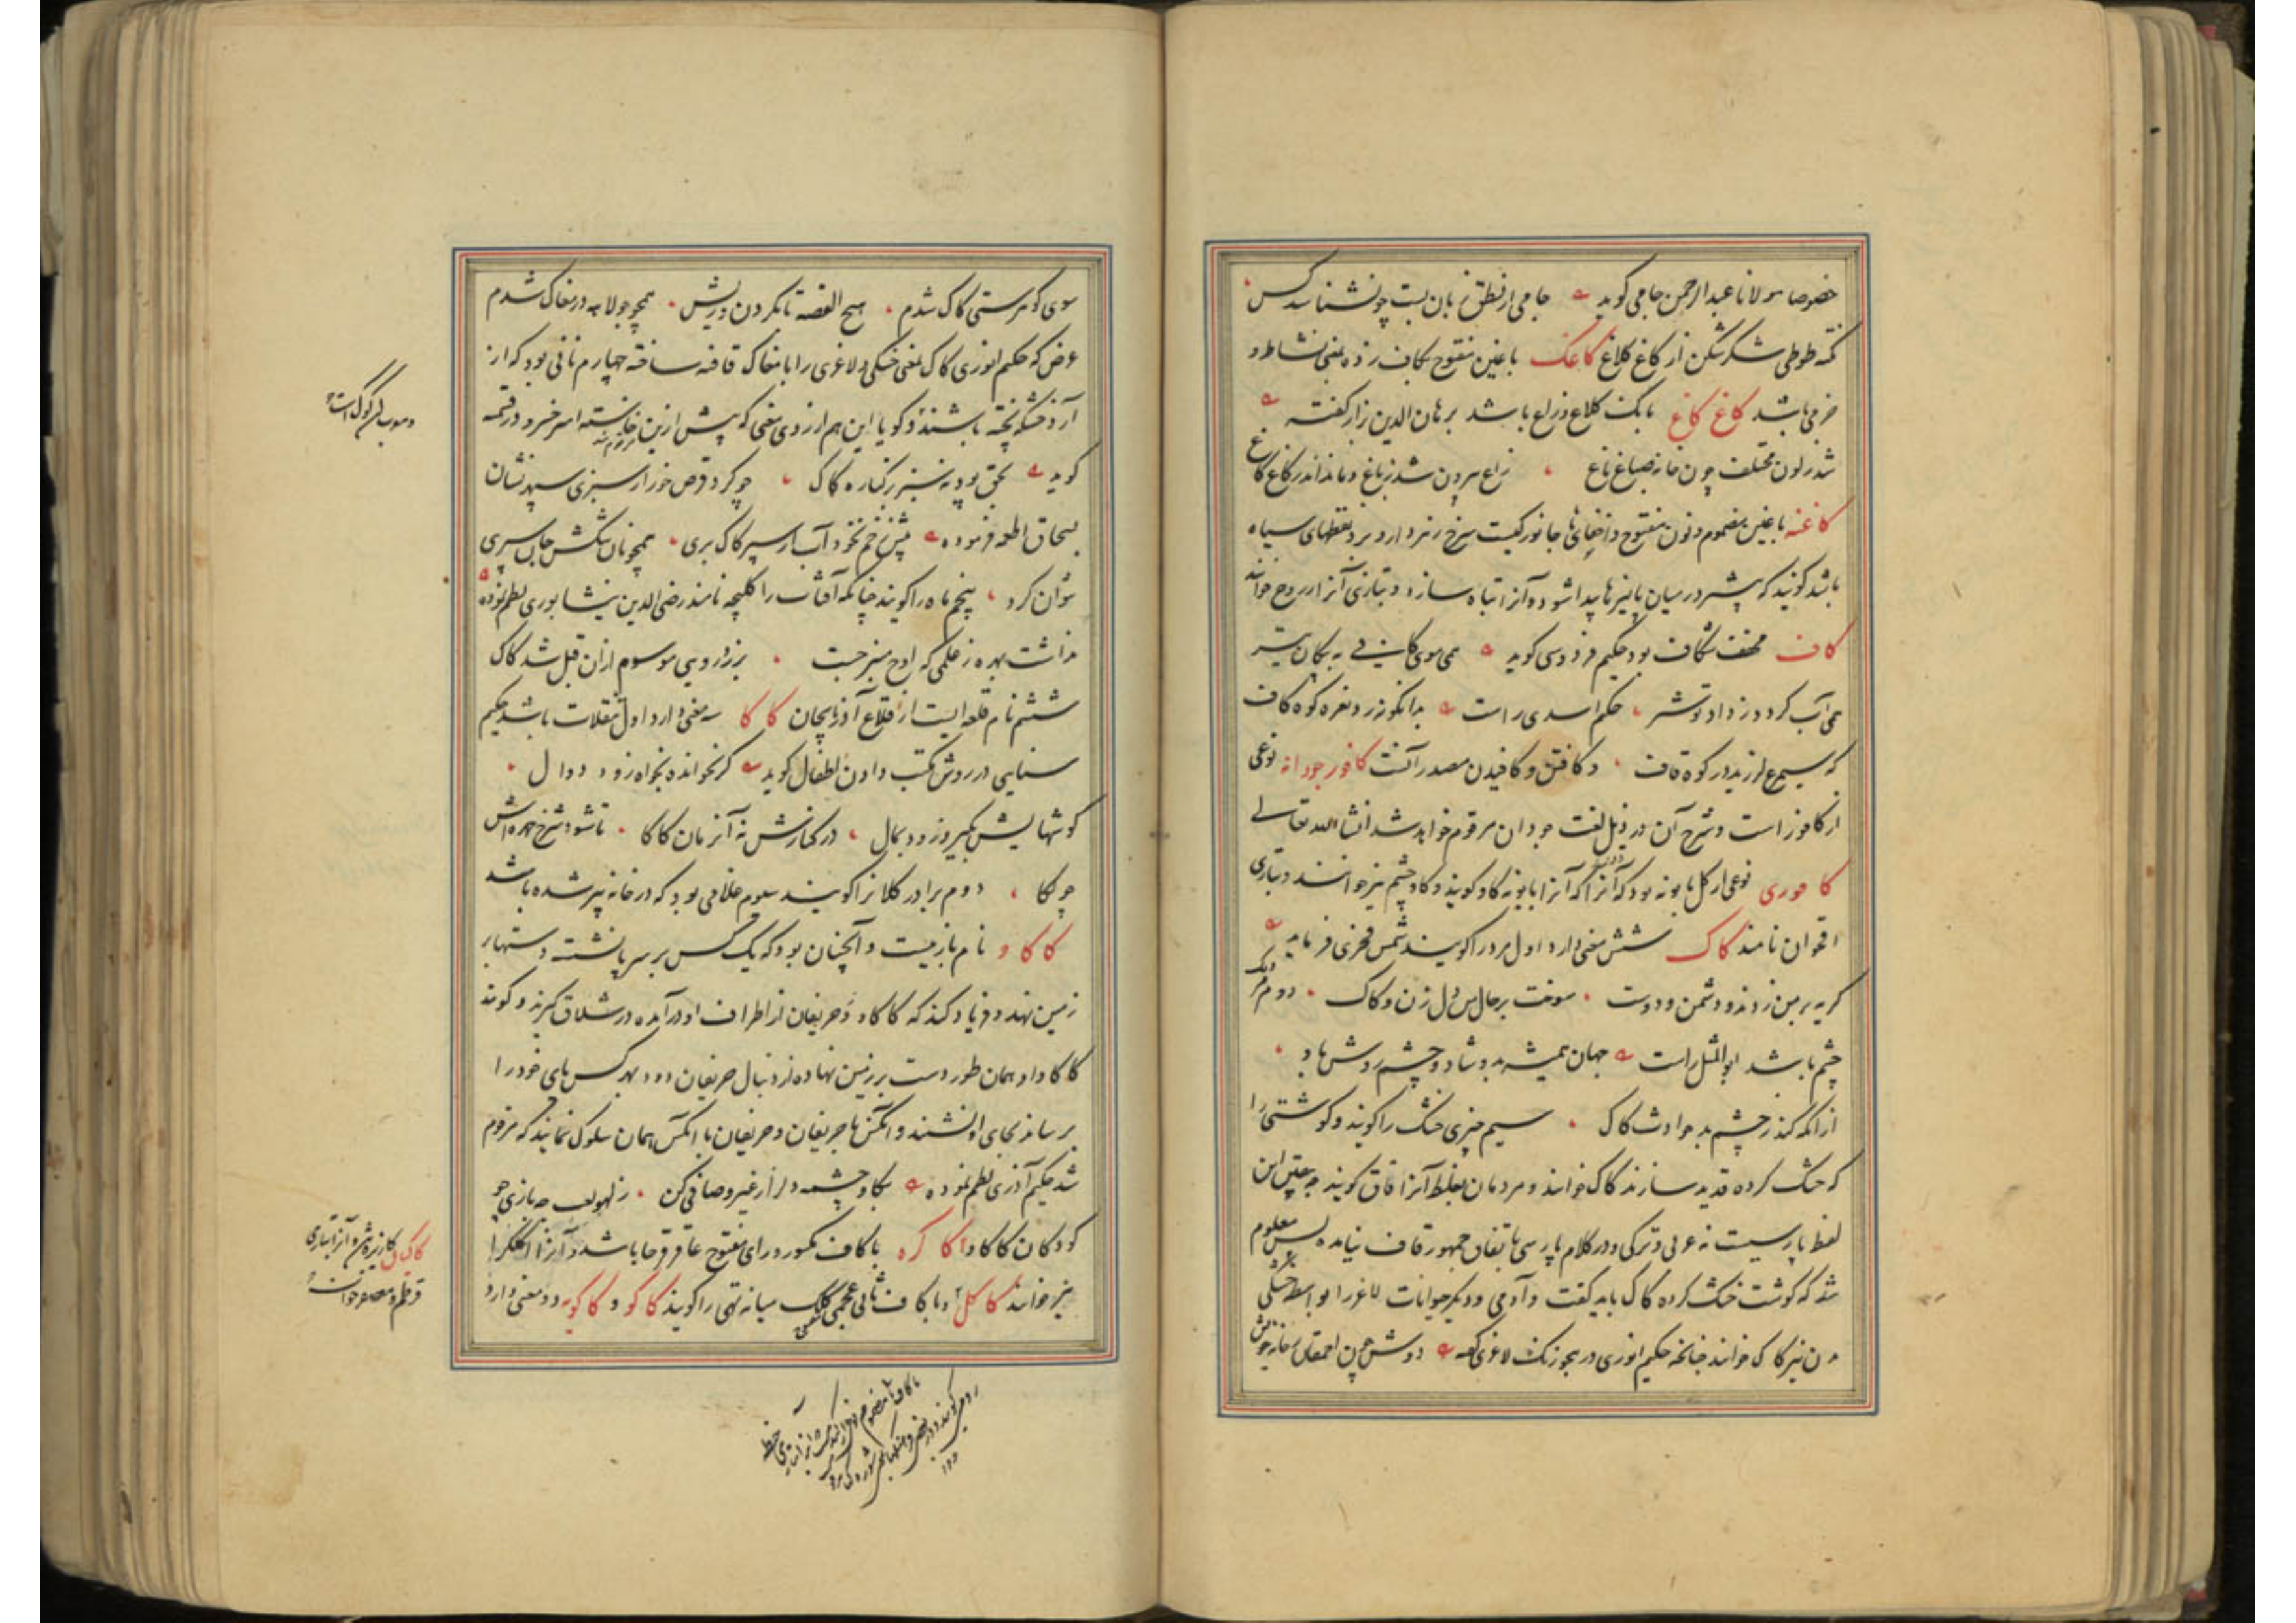 خصوصا مولانا عبدالرحمن جامی گوید جامی از نطق زبان بست چو نشناسد کس
نکته طوطی شکر شکن از کاغ کلاغ کاغک با غین مفتوح بکاف زده بمعنی نشاط و
خرمی باشد کاغ کاغ بانگ کلاغ و زاغ باشد برهان الدین بزاز گفته
شد ز لون مختلف چون خانه صباغ باغ زاغ بیرون شد ز باغ و ماند اندر کاغ کاغ
کاغنه با غین مضموم و نون مفتوح و اخفای ها جانوریست سرخ زنبر دارد و بر و نقطهای سیاه
باشد گویند که بیشتر در میان پالیزها پیدا شود و آنرا تباه سازد و بتازی آنرا ذروح خوانند
کاف مخفف شکاف بود حکیم فردوسی گوید همی موی کافی به پیکان تیر
همی آب گردد ز داد تو شر حکیم اسدی راست بدانگونه زد نعره کوه کاف
که سیمرغ لرزید در کوه قاف و کافتن و کافیدن مصدر آنست کافور جودانه نوعی
از کافور است و شرح آن در ذیل لغت جودان مرقوم خواهد شد انشاالله تعالی
کافوری نوعی از گل بابونه بود که آنرا که آنرا بابونه گاو گویند و گاو چشم نیز خوانند و بتازی
اقحوان نامند کاک شش معنی دارد اول مرد را گویند شمس فخری فرماید
گریه بر من زدند و دشمن و دوست سوخت بر حال من دل زن و کاک دوم مردمک
چشم باشد ابوالمثل راست جهان همیشه بدو شاد و چشم روشن باد
از آنکه کند ز چشم بد حوادث کاک سیم چیزی خشک را گویند و گوشتی را
که خشک کرده قدید سازند کاک خوانند و مردمان بغلط آنرا قاق گویند چه یقین این
لفظ پارسیست نه عربی و ترکی و در کلام پارسی باتفاق جمهور قاف نیامده پس معلوم
شد که گوشت خشک کرده کاک باید گفت و آدمی و دیگر حیوانات لاغر را بواسطه خشکی
بدن نیز کاک خوانند چنانچه حکیم انوری در هجو زنک لاغری گفته دوش چون احمقان ز خانه خویش
سوی کو مرستی کاک شدم هیچ القصه تا نکردن و ریش همچو جولاهه در مغاک شدم
غرض که حکیم انوری کاک بمعنی خشکی و لاغری را با مغاک قافیه ساخته چهارم نانی بود که از
آرد خشکه پخته باشند و گویا این هم از روی معنی که پیش ازین امیر خسرو در قسمه
گوید بحق بود نه سبز بر کناره کاک چو گرد قرص خور از سبزی سپهر نشان
بسحاق اطعمه فرموده پیش زخم نخود آب از سپر کاک بری همچو نان تنکش جای سپری
نتوان کرد پنجم ماه را گویند چنانکه آفتاب را کلیچه نامند رضی الدین نیشابوری نظم نموده
نداشت بهره ز علمی که اوج منبر جست بزرد رویی موسوم از آن قبل شد کاک
ششم نام قلعه ایست از قلاع آذربایجان کاکا سه معنی دارد اول تنقلات باشد حکیم
سنایی در روش مکتب دادن اطفال گوید گر نخواند نخواه زود دوال
گوشهایش بگیر و زود بمال در کنارش نه آنزمان کاکا تا شود سرخ چهره اش
چو لکا دوم برادر کلانرا گویند سوم غلامی بود که در خانه پیر شده باشد
کاکاو نام بازیست و آنچنان بود که یک کس بر سر پا نشسته و دستها بر
زمین نهد و فریاد کند که کاکاو و حریفان از اطراف او درآمده در شلاق گیرند و گویند
کاکاو او همان طور دست بر زمین نهاده از دنبال حریفان دود بهر کس پای خود را
برساند بجای او نشند و آنکس با حریفان و حریفان با آنکس همان سلوک نمایند که مرقوم
شد حکیم آذری نظم نموده بکاو چشمه دل از غیر و صافی کن ز لهو لعب چه بازی چو
کودکان کاکاو کاکره با کاف مکسور و رای مفتوح عاقرقرحا باشد و آنرا کلکرا
نیز خوانند کاکل و با کاف ثانی عجمی میانه تهی را گویند کاکو و کاکویه دو معنی دارد
و معرب
کاکل کازیره و آنرا بتازی
قرطم و عصفر خوانند